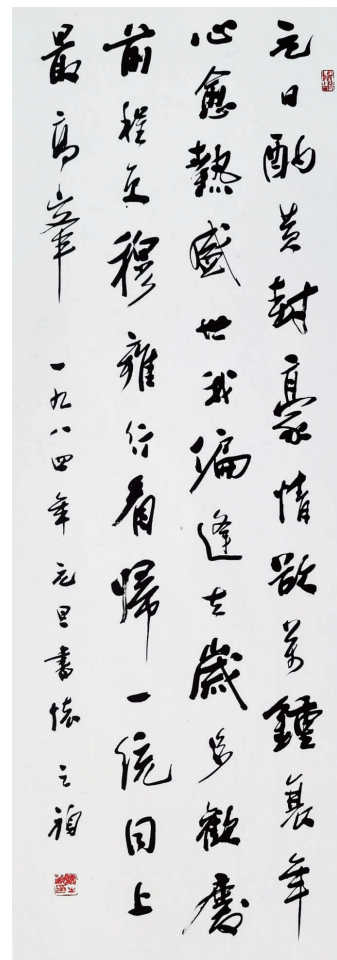 元日酌黄封豪情欲萬鍾衰年
心愈熱盛世我偏逢去歲多歡慶
前程更穆雍行看歸一統同上
最高峯 一九八四年元旦書懷 之